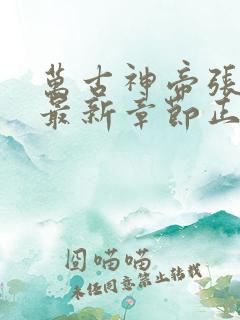 萬古神帝張
最新章節正
囧喵喵
未经同意禁止转载